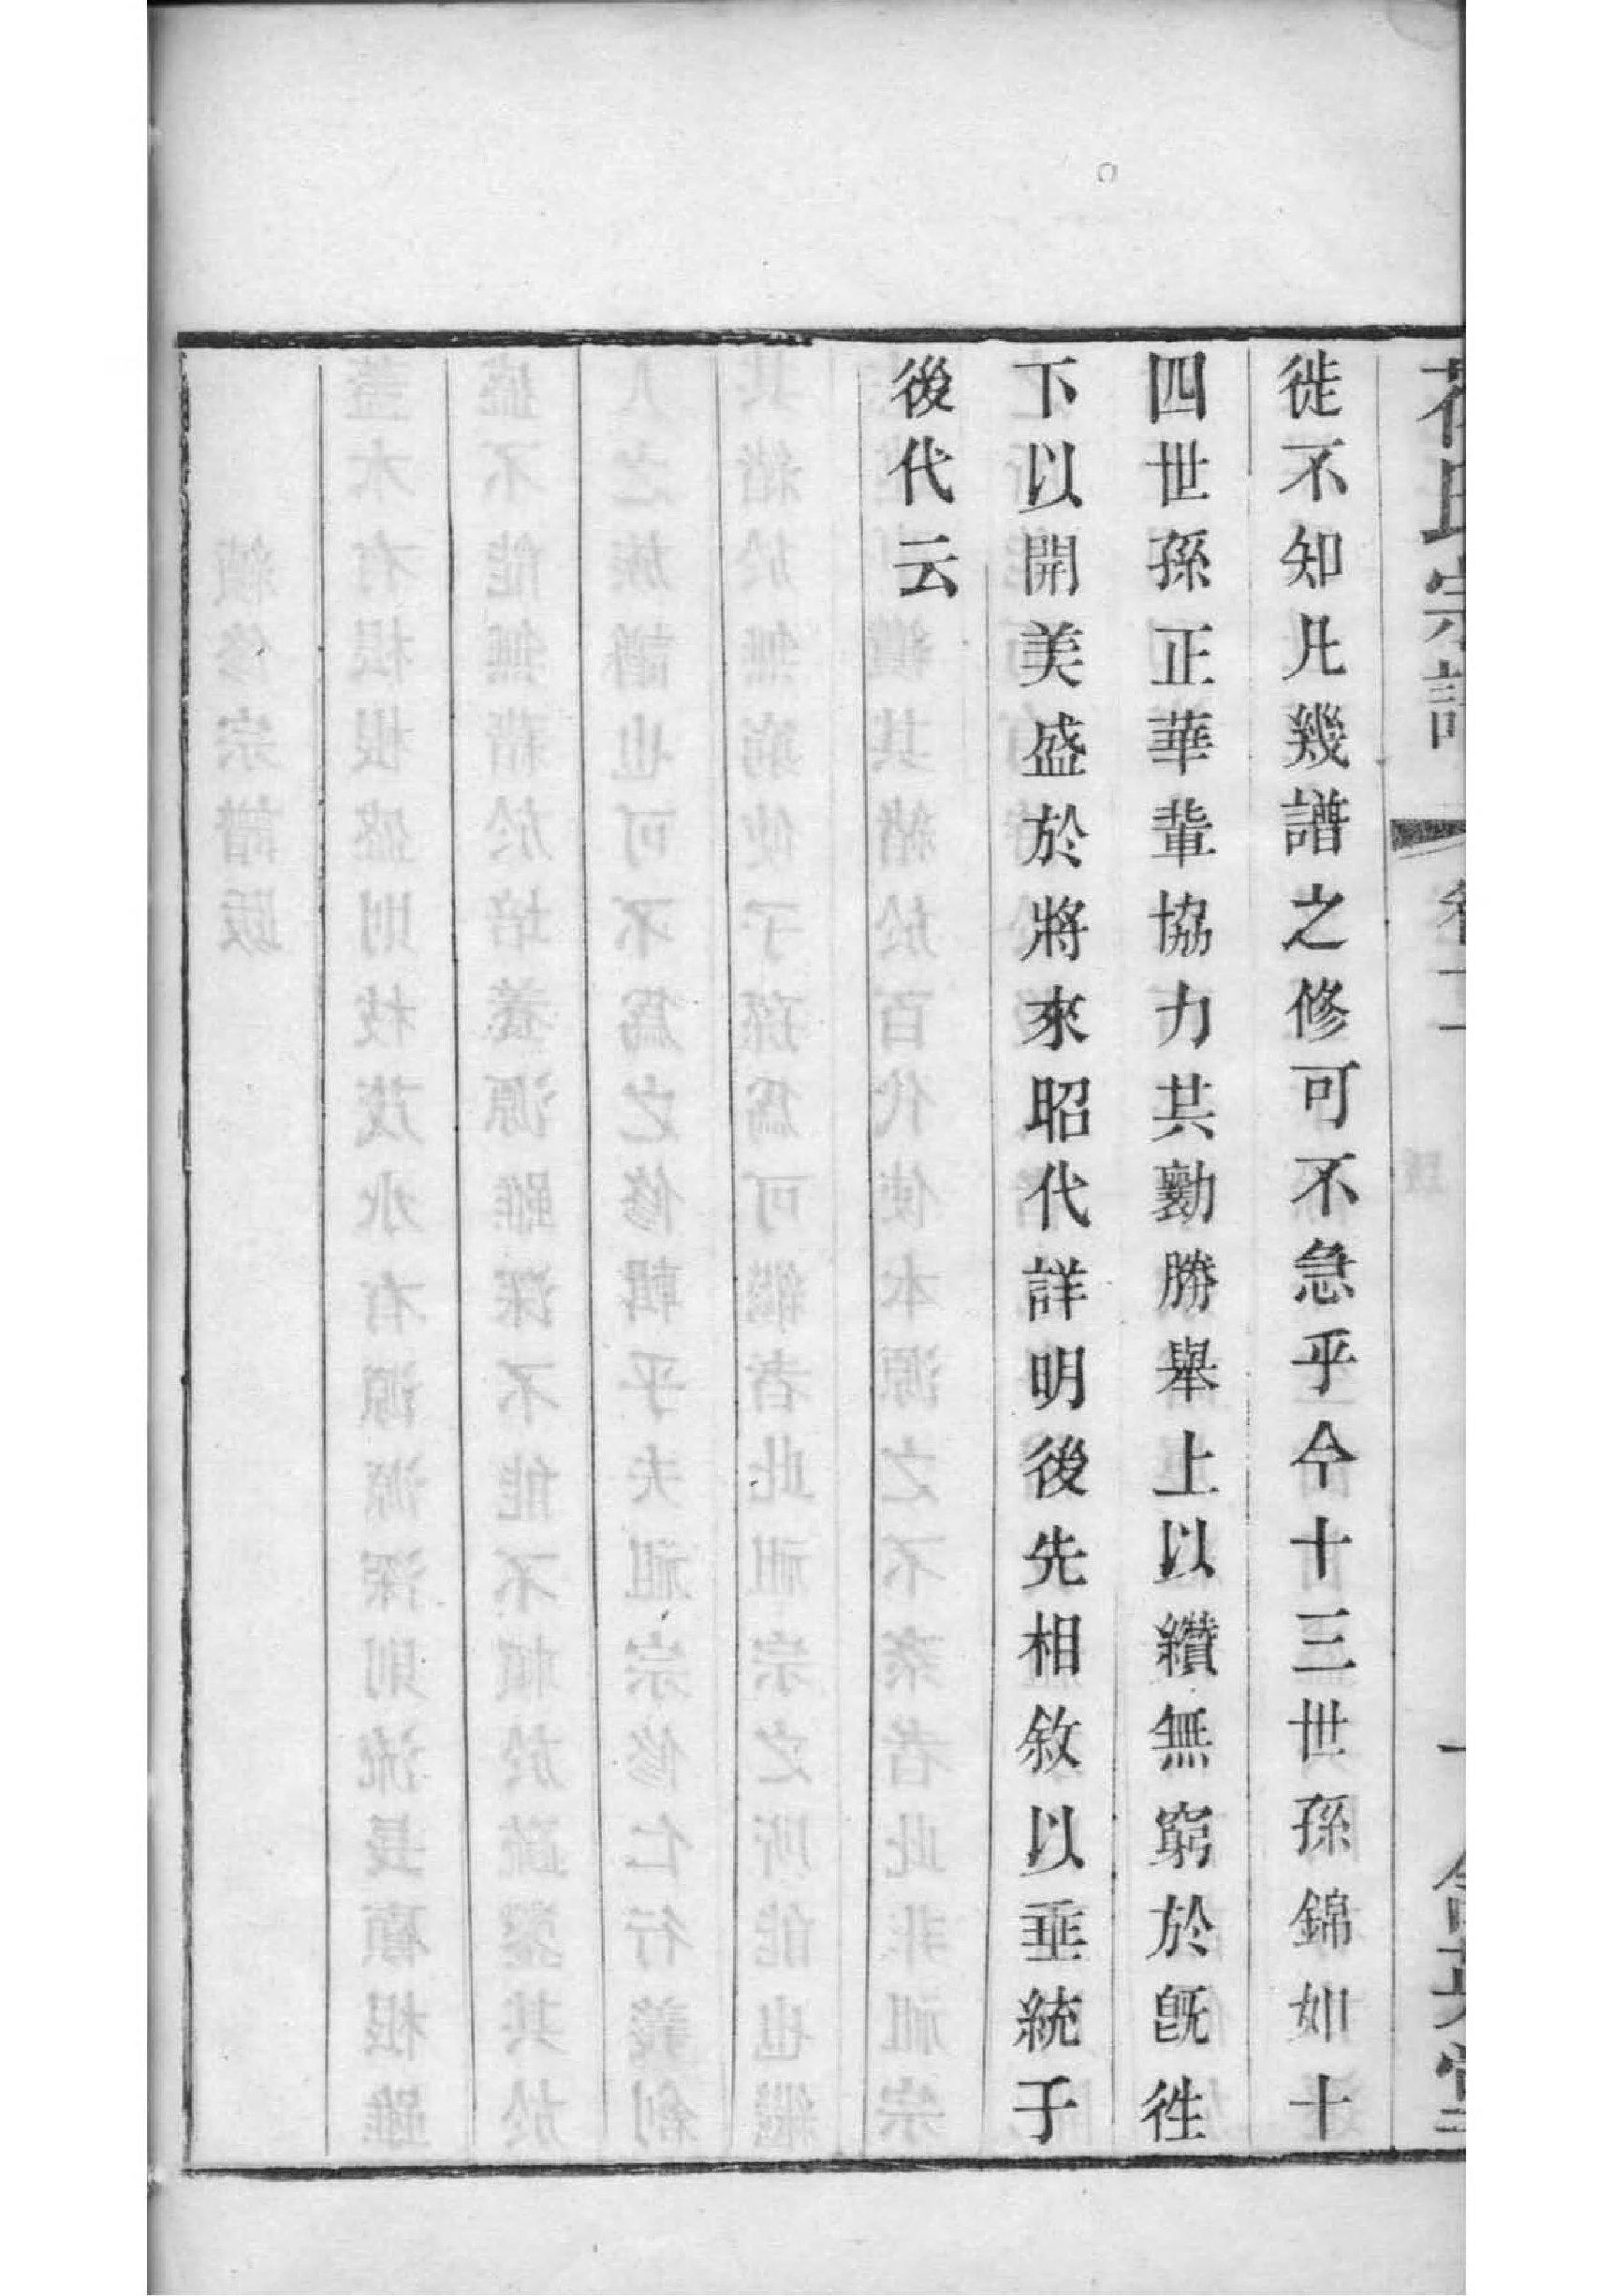 徙不知凡幾譜之修可不急乎今十三世孫錦如十
四世孫正華輩協力共勷勝舉上以纘無窮於旣徃
下以開美盛於將來昭代詳明後先相敘以垂統于
後代云